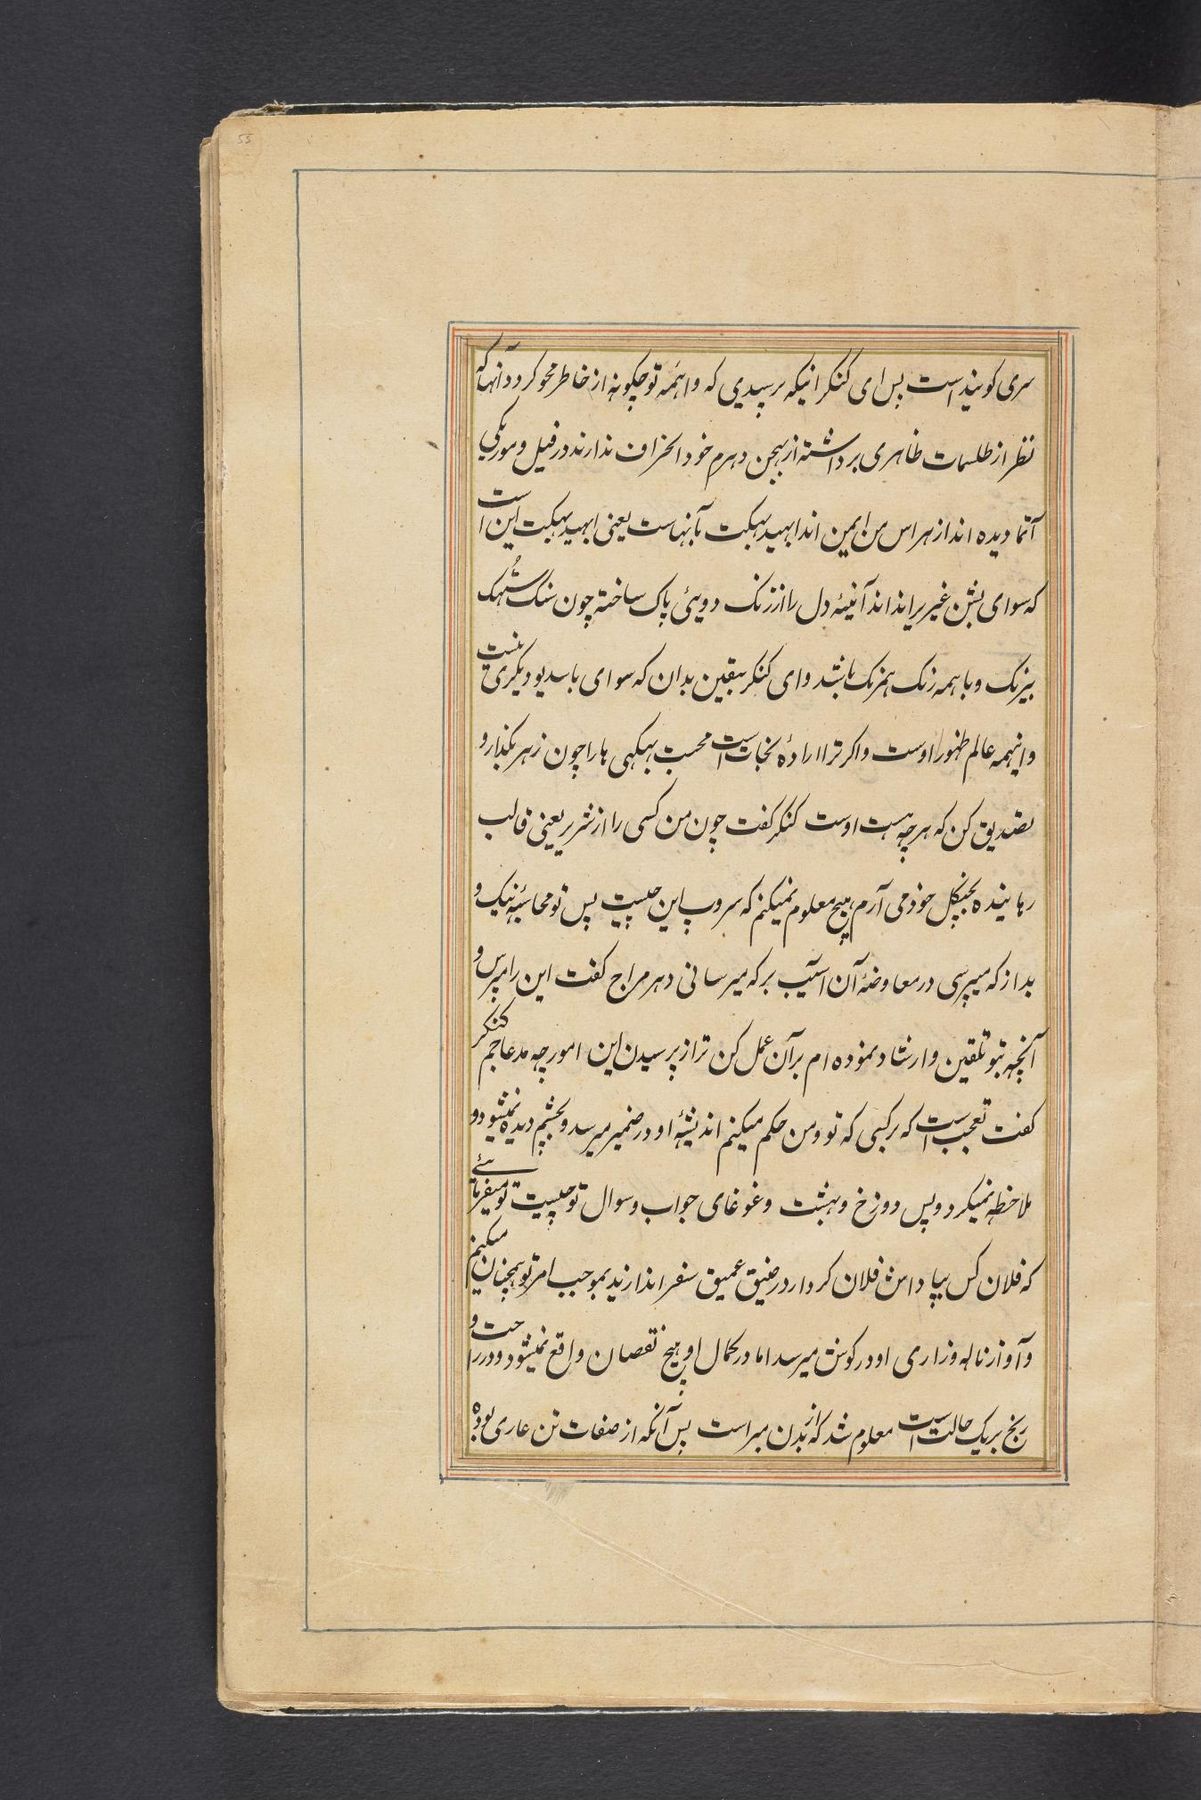 55
سری کوبیند است پس ای کنکر اینکه پرسیدی که واهمهٔ تو چکونه از خاطر محو کردد آنها که
نظر از طلسمات ظاهری برداشته از بهجن دهرم خود انحراف ندارند در فیل و مور یکی
آتما دیده اند از هراس من ایمن اند ابهید بهکت بآنهاست یعنی ابهید بهکت این است
که سوای بشن غیر یرا نداند آئینهٔ دل را از زنک دویئی پاک ساخته چون سنک شهٹک
بیرنک و با همه رنک همرنک باشد و ای کنکر بیقین بدان که سوای باسدیو دیکری نیست
و اینهمه عالم ظهور اوست و اکر ترا ارادهٔ نجات است محبت بهکهی ها را چون زهر بکذار و
تصدیق کن که هر چه هست اوست کنکر کفت چون من کسی را از شریر یعنی قالب
رهانیده بجنکل خود می آرم هیچ معلوم نمیکنم که سروپ این چیست پس تو محاسبهٔ نیک و
بد از که میپرسی در معاوضهٔ آن آسیب بر که میرسانی دهرمراج کفت این را مپرس و
آنچه بتو تلقین و ارشاد نموده ام بر آن عمل کن ترا از پرسیدن این امور چه مدعا جم کنکر
کفت تعجب است که بر کسی که تو و من حکم میکنم اندیشهٔ او در ضمیر میرسد و بچشم دیده نمیشود و
ملاحظه نمیکردد پس دوزخ و بهشت و غوغای جواب و سوال تو چیست تو میفرمائی
که فلان کس بپاداش فلان کردار در ضیق عمیق سفر اندازید بموجب امر تو همچنان میکنم
و آواز ناله و زاری او در کوش میرسد اما در کمال او هیچ نقصان واقع نمیشود و در راحت و
رنج بریک حالت است معلوم شد که از بدن مبراست پس آنکه از صفات تن عاری بوده